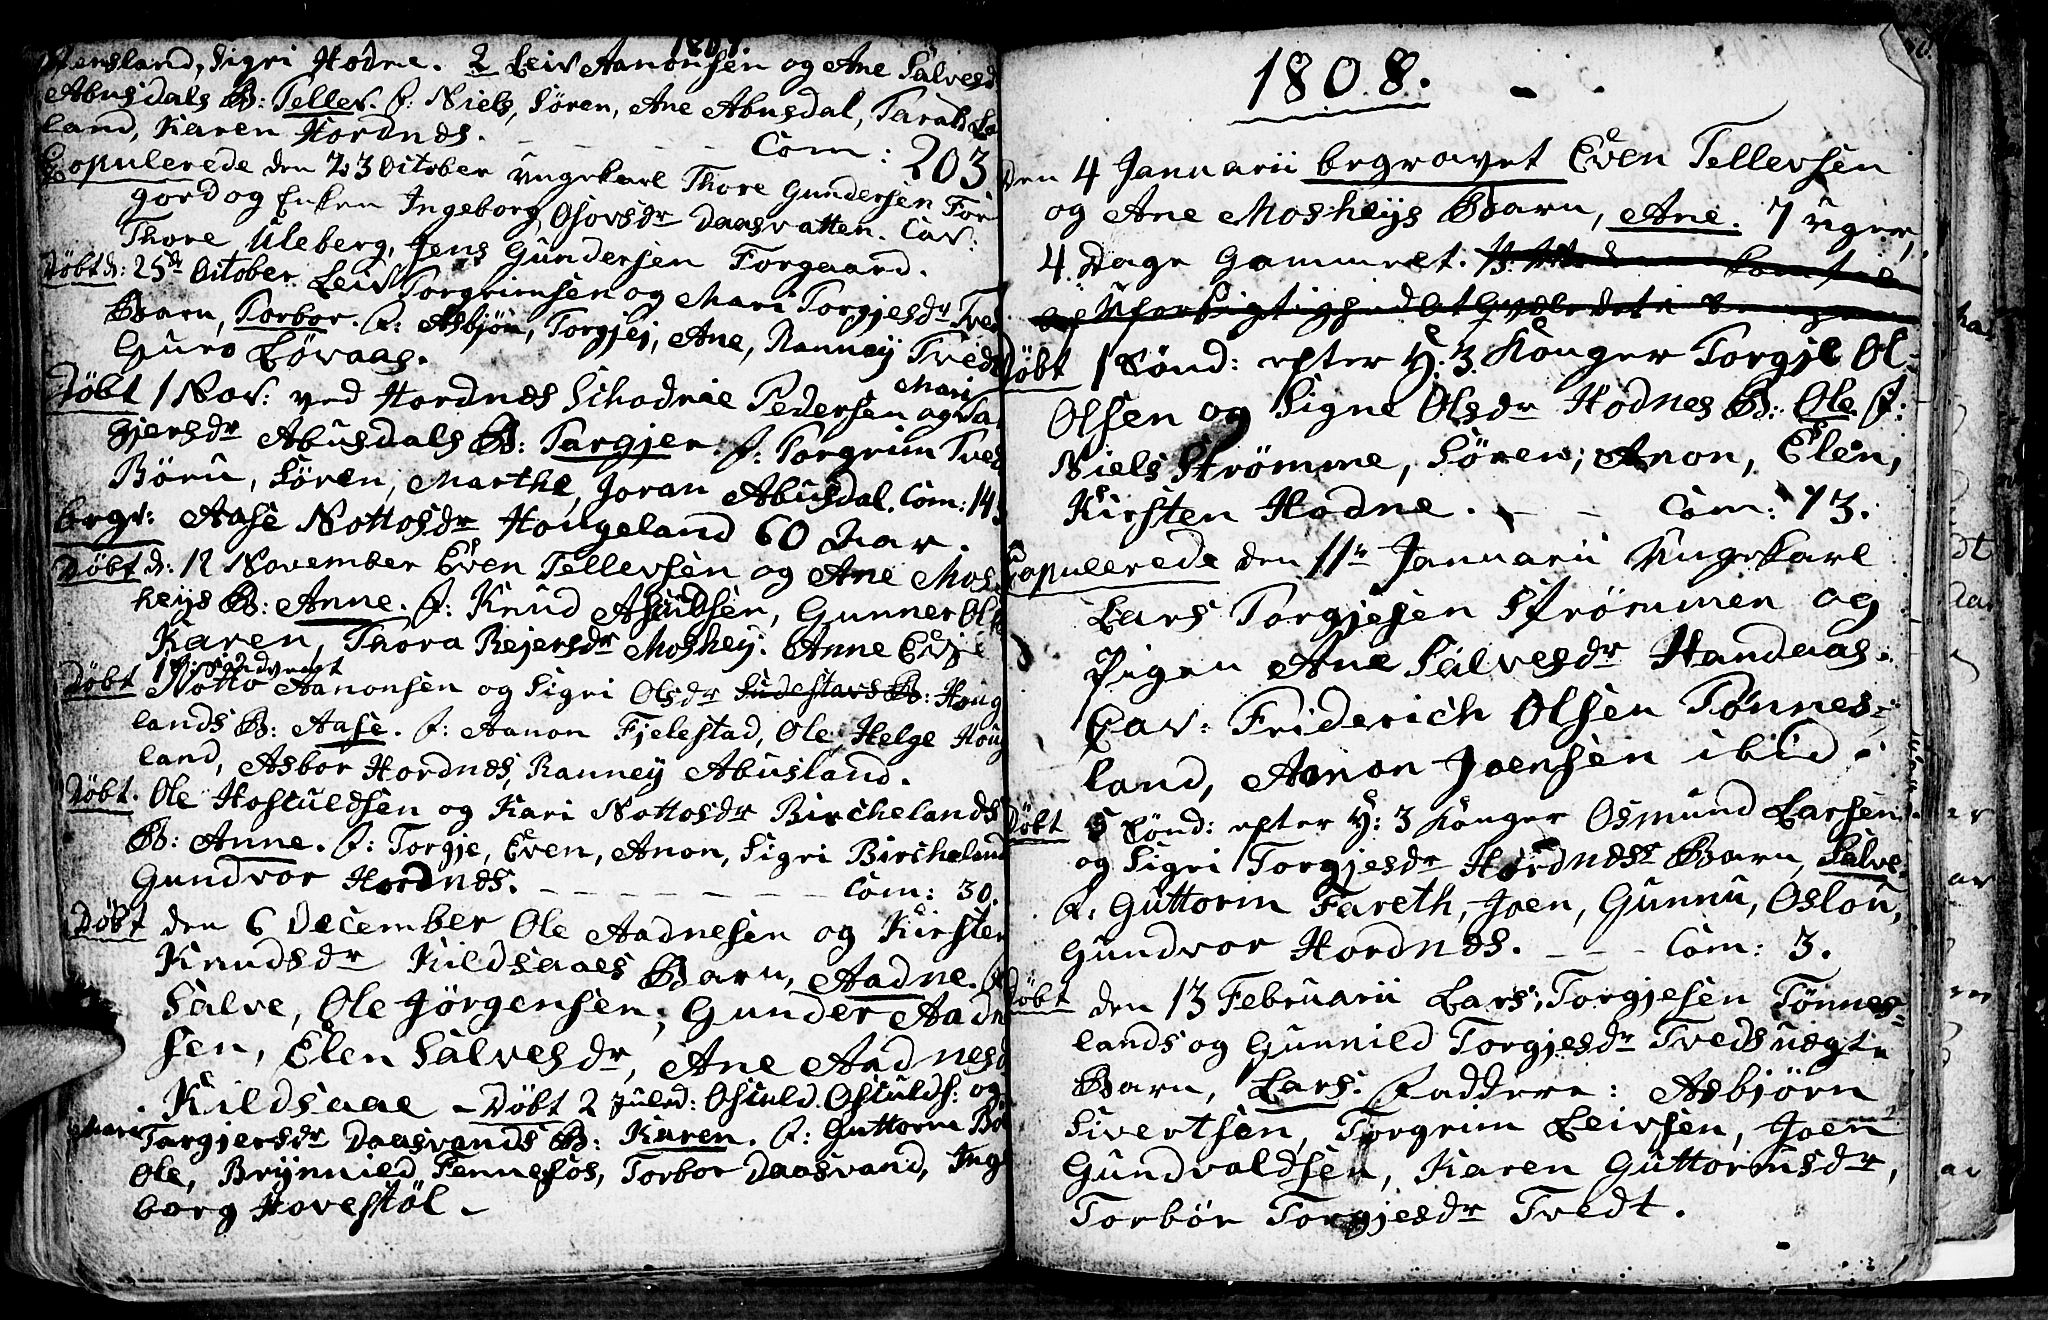 1807.
Stensland, Sigri Hodne. 2 Leiv Aanonsen og Ane Salvesd
Abusdals B: Tellev. F: Niels, Sören, Ane Abusdal, Tarald
land, Karen Hordnes. Com: 203.
Copulerede den 23 October Ungekarl Thore Gundersen For
gord og Enken Ingeborg Osovsdr Daasvatten. Cav:
Thore Uleberg, Jens Gundersen Forgaard.
Döbt d: 25de October Leiv Torgrimsen og Mari Torgjesdr Tved
Barn, Torbor. F: Asbjön, Torgjej, Ane, Ranney Tvedt
Guro Lövaas.
Döbt 1 Nov: ved Hordnes Schodrie Pedersen og Mari Ta
gjersdr Abusdals B: Targjer. F: Torgrim Tved
Böru, Sören, Marthe, Joran Abusdal. Com: 14
begr: Aase Nottosdr Hougeland 60 Aar.
Döbt d: 12 November Even Tellevsen og Ane Mos
heys B: Anne. F: Knud Asuldsen, Gunner Ols
Karen, Thora Rejersdr Moshey. Anne Evje
Döbt Notto Aanonsen og Sigri Olsdr B: Houg
lands B: Aase. F: Aanon Fjelestad, Ole, Helge Houg
land, Asbor Hordnes, Ranney Abusland.
Döbt. Ole Hosculdsen og Kari Nottosdr Birchelands
B: Anne. F: Torgje, Even, Anon, Sigri Bircheland
Gundvor Hordnes. Com: 30.
Döbt den 6 December Ole Aadnesen og Kirsten
Knudsdr Kildsaaes Barn, Aadne. F
Salve, Ole Jörgensen, Gunder Aadn
sen, Elen Salvesdr, Ane Aadnesd
Kildsaae - Döbt 2 Juled: Osculd Osculds: og
Mari Targjersdr Daasvands B: Karen. F: Guttorm Bö
Ole, Brynnild Fennefos, Torbor Daasvand, Inge
borg Hovestöl.
1808.
Den 4 Januarii begravet Even Tellevsen
og Ane Mosheys Barn, Ane. 7 Uger,
4 Dage Gammelt.
Döbt 1 Sönd: efter H: 3 Konger Torgje Ol=
Olsen og Signe Olsdr Hodnes B: Ole F:
Niels Strömme, Sören, Anon, Elen,
Kirsten Hodne. Com: 73.
Copulerede den 11te Januarii Ungekarl
Lars Torgjesen Strömmen og
Pigen Ane Salvesdr Handaas.
Cav: Friderich Olsen Tönnes=
land, Aanon Joensen ibid.
Döbt 5 Sönd: efter H: 3 Konger Osmund Larsen
og Sigri Torgjesdr Hordnes Barn, Salve
F: Guttorm Fareth, Joen, Gunnu, Oslou,
Gundvor Hordnes. Com: 3.
Döbt den 13 Februarii Lars Torgjesen Tönnes=
lands og Gunnild Torgjesdr Tveds uegte
Barn, Lars. Faddere: Asbjörn
Sivertsen, Torgrim Leivsen, Joen
Gundvaldsen, Karen Guttormsdr,
Torbör Torgjesdr Tvedt.